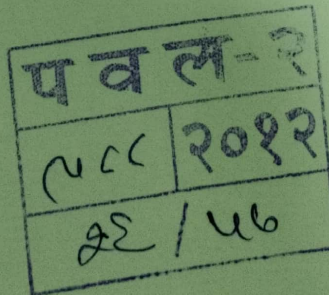 प व ल-२
५८८ २०१२
२६ / ५७